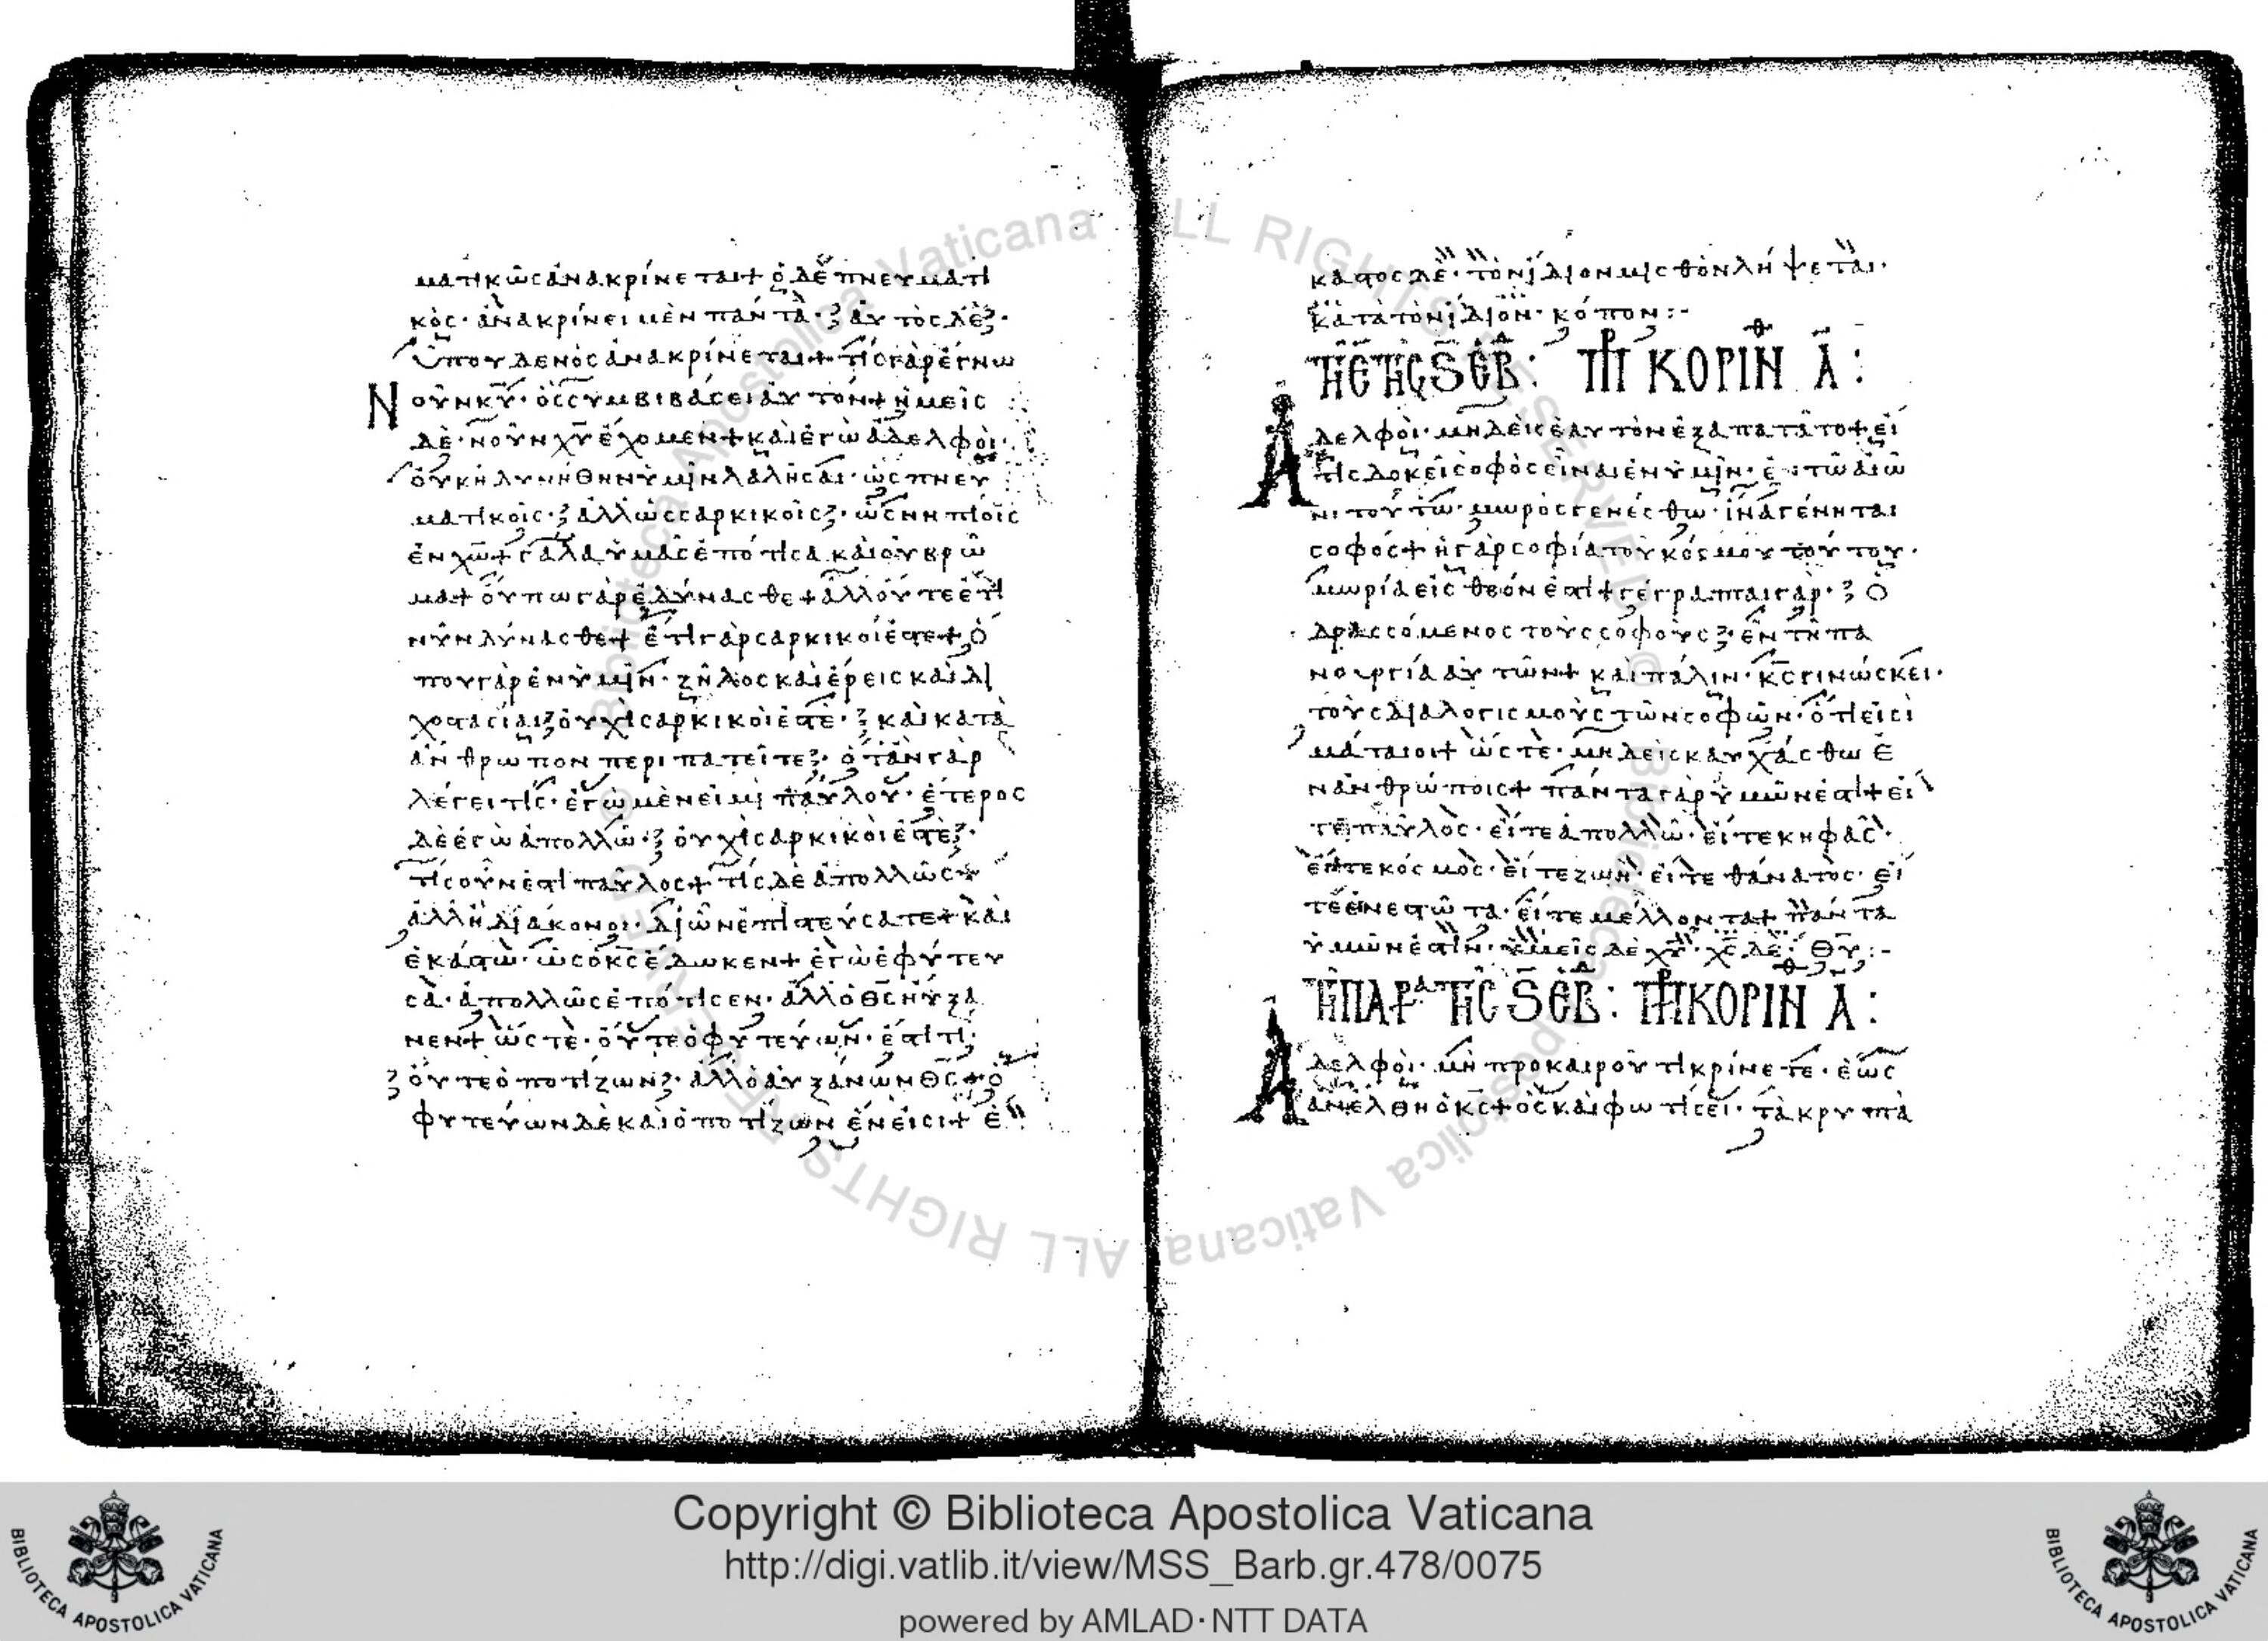 ματικῶς ἀνακρίνεται + ὁ δὲ πνευματι
κὸς · ἀνακρίνει μὲν πάντα · αὐτὸς δὲ ·
ὑπ' οὐδενὸς ἀνακρίνεται + τίς γὰρ ἔγνω
Νοῦν κῡ · ὃς συμβιβάσει αὐτόν + ἡμεῖς
δὲ · νοῦν χῡ ἔχομεν + καὶ ἐγὼ ἀδελφοὶ ·
οὐκ ἠδυνήθην ὑμῖν λαλῆσαι · ὡς πνευ
ματικοῖς · ἀλλ' ὡς σαρκικοῖς · ὡς νηπίοις
ἐν χω̄ + γάλα ὑμᾶς ἐπότισα καὶ οὐ βρῶ
μα + οὔπω γὰρ ἐδύνασθε + ἀλλ' οὔτε ἔτι
νῦν δύνασθε + ἔτι γὰρ σαρκικοί ἐστε + ὅ
που γὰρ ἐν ὑμῖν · ζῆλος καὶ ἔρεις καὶ δι
χοστασίαι οὐχὶ σαρκικοί ἐστὲ · καὶ κατὰ
ἄνθρωπον περιπατεῖτε · ὅταν γὰρ
λέγει τίς · ἐγὼ μὲν εἰμι παύλου · ἕτερος
δὲ ἐγὼ ἀπολλῶ · οὐχὶ σαρκικοὶ ἐστὲ ·
τίς οὖν ἐστι παῦλος + τίς δὲ ἀπολλῶς +
ἀλλ' ἢ διάκονοι · δι' ὧν ἐπιστεύσατε + καὶ
ἑκάστω · ὡς ὁ κς̄ ἔδωκεν + ἐγὼ ἐφύτευ
σὰ · ἀπολλῶς ἐπότισεν · ἀλλ' ὁ θς̄ ηὔξα
νεν + ὥστε · οὔτε ὁ φυτεύων · ἐστί τι ·
οὔτε ὁ ποτίζων · ἀλλ' ὁ αὐξάνων θς̄ + ὁ
φυτεύων δὲ καὶ ὁ ποτίζων ἕν εἰσι + ἕ
καστος δὲ · τὸν ἴδιον μισθὸν λήψεται ·
κατὰ τὸν ἴδιον · κόπον :-
ΚΟΡΙΝ Ᾱ :
Ἀδελφοὶ · μηδεὶς ἑαυτὸν ἐξαπατάτο + εἴ
τις δοκεῖ σοφὸς εἶναι ἐν ὑμῖν · ἐν τῶ αἰῶ
νι τούτω · μωρὸς γενέσθω · ἵνα γέννηται
σοφός + ἡ γὰρ σοφία τοῦ κόσμου τούτου ·
μωρία εἰς θεόν ἐστι + γέγραπται γὰρ · ὁ
δρασσόμενος τοὺς σοφοὺς · ἐν τῆ πα
νουργία αὐτῶν + καὶ πάλιν · κς̄ γινώσκει ·
τοὺς διαλογισμοὺς τῶν σοφῶν · ὅτι εἰσὶ
μάταιοι + ὥστε · μηδεὶς καυχάσθω ἐ
ν ἀνθρώποις + πάντα γὰρ ὑμῶν ἐστι + εἴ
τε παῦλος · εἴτε ἀπολλῶ · εἴτε κηφᾶς ·
εἴτε κόσμος · εἴτε ζωὴ · εἴτε θάνατος · εἴ
τε ἐνεστῶτα · εἴτε μέλλοντα + πάντα
ὑμῶν ἐστὶν · ὑμεῖς δὲ χῡ · χς̄ δὲ · θῡ :-
ΚΟΡΙΝ Ᾱ :
Ἀδελφοὶ · μὴ πρὸ καιροῦ τι κρίνετε · ἕως
ἂν ἔλθη ὁ κς̄ + ὃς καὶ φωτίσει · τὰ κρυπτὰ